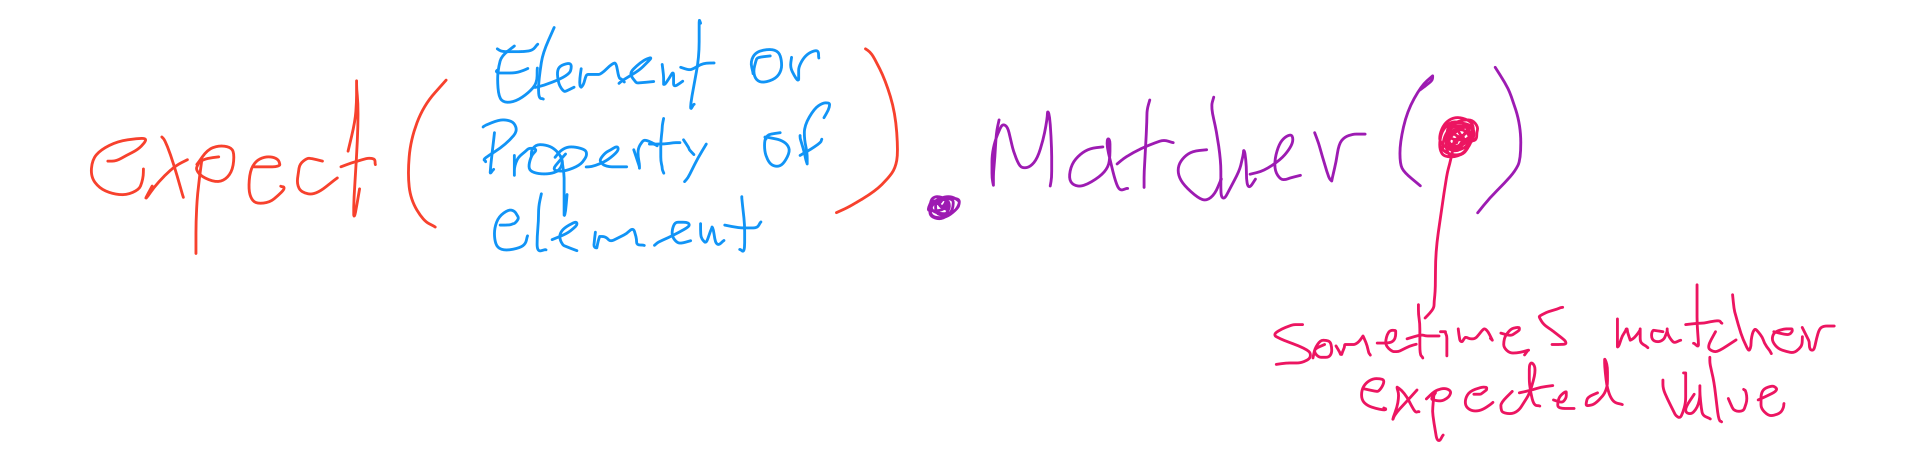 expect( Element or
Property of
element ).Matcher( )
Sometimes matcher
expected value